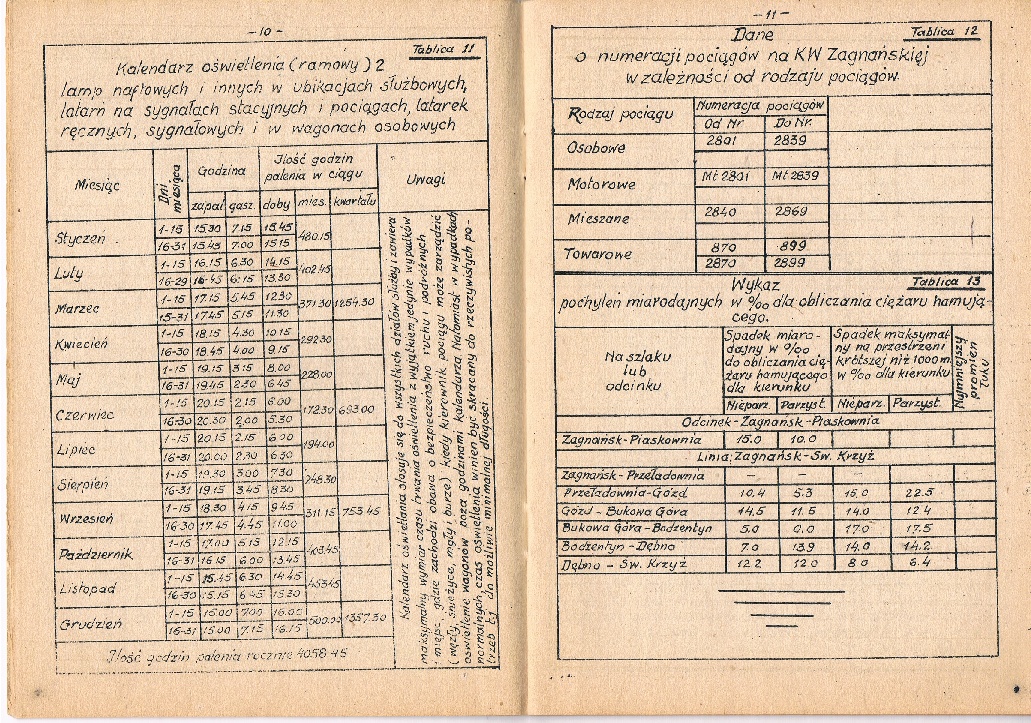 - 10 -
Tablica 11
Kalendarz oświetlenia (ramowy) 2
lamp naftowych i innych w ubikacjach służbowych,
latarń na sygnałach stacyjnych i pociągach, latarek
ręcznych, sygnałowych i w wagonach osobowych
Miesiąc Dni miesiąca Godzina Ilość godzin palenia w ciągu Uwagi
zapal gasz. doby mies. kwartału
Styczeń 1-15 15.30 7.15 15.45 480.15
16-31 15.45 7.00 15.15
Luty 1-15 16.15 6.30 14.15 402.45
16-29 16.45 6.15 13.30
Marzec 1-15 17.15 5.45 12.30 371.30 1254.30
15-31 17.45 5.15 11.30
Kwiecień 1-15 18.15 4.30 10.15 292.30
16-30 18.45 4.00 9.15
Maj 1-15 19.15 3.15 8.00 228.00
16-31 19.45 2.30 6.45
Czerwiec 1-15 20.15 2.15 6.00 172.30 693.00
16-30 20.30 2.00 5.30
Lipiec 1-15 20.15 2.15 6.00 194.00
16-31 20.00 2.30 6.30
Sierpień 1-15 19.30 3.00 7.30 248.30
16-31 19.15 3.45 8.30
Wrzesień 1-15 18.30 4.15 9.45 311.15 753.45
16-30 17.45 4.45 11.00
Październik 1-15 17.00 5.15 12.15 403.45
16-31 16.15 6.00 13.45
Listopad 1-15 15.45 6.30 14.45 453.45
16-30 15.15 6.45 15.30
Grudzień 1-15 15.00 7.00 16.00 500.00 1357.30
16-31 15.00 7.15 16.15
Ilość godzin palenia rocznie 4058.45
Kalendarz oświetlania stosuje się do wszystkich działów służby i zawiera
maksymalny wymiar czasu trwania oświetlenia z wyjątkiem jedynie wypadków
i miejsc, gdzie zachodzi obawa o bezpieczeństwo ruchu i podróżnych
(węzły, śnieżyce, mgły i burze) kiedy kierownik pociągu może zarządzić
oświetlenie wagonów poza godzinami kalendarza. Natomiast w wypadkach
normalnych, czas oświetlenia winien być skracany do rzeczywistych po-
trzeb t.j. do możliwie minimalnej długości.
- 11 -
Dane Tablica 12
o numeracji pociągów na KW Zagnańskiej
w zależności od rodzaju pociągów.
Rodzaj pociągu Numeracja pociągów
Od Nr Do Nr.
Osobowe 2801 2839
Motorowe Mt 2801 Mt 2839
Mieszane 2840 2869
Towarowe 870 899
2870 2899
Wykaz Tablica 13
pochyleń miarodajnych w ‰ dla obliczania ciężaru hamują-
cego.
Na szlaku lub odcinku
Spadek miaro-
dajny w ‰
do obliczania cię-
żaru hamującego
dla kierunku
Spadek maksymal-
ny na przestrzeni
krótszej niż 1000 m.
w ‰ dla kierunku
Najmniejszy promień łuku
Nieparz. Parzyst. Nieparz. Parzyst.
Odcinek-Zagnańsk-Piaskownia
Zagnańsk-Piaskownia 15.0 10.0
Linia; Zagnańsk-Św. Krzyż
Zagnańsk-Przeładownia - - - -
Przeładownia-Gózd 10.4 5.3 15.0 22.5
Gózd - Bukowa Góra 14.5 11.5 14.0 12.4
Bukowa Góra-Bodzentyn 5.0 0.0 17.0 17.5
Bodzentyn - Dębno 7.0 13.9 14.0 14.2
Dębno - Św. Krzyż 12.2 12.0 8.0 6.4